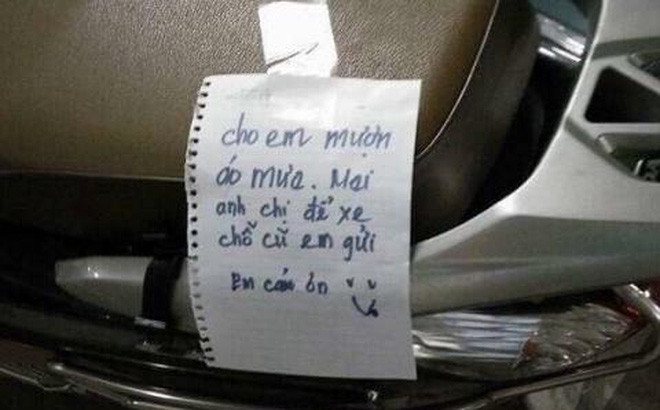 cho em mượn
áo mưa. Mai
anh chị để xe
chỗ cũ em gửi
Em cám ơn